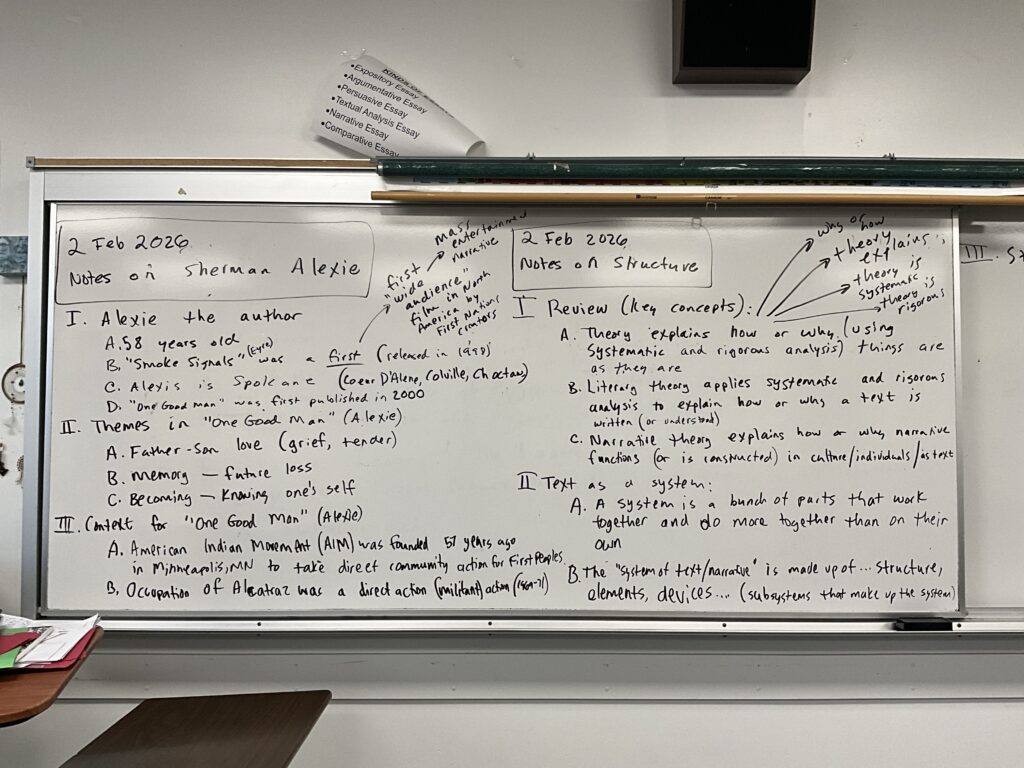 KINDS OF
•Expository Essay
•Argumentative Essay
•Persuasive Essay
•Textual Analysis Essay
•Narrative Essay
•Comparative Essay
2 Feb 2026
Notes on Sherman Alexie
mass
entertainment
narrative
first
"wide
audience"
film in North
America by
First Nations
creators
I. Alexie the author
A. 58 years old
B. "Smoke Signals" (Eyre) was a first (released in 1998)
C. Alexis is Spokane (Coeur D'Alene, Colville, Choctaw)
D. "One Good Man" was first published in 2000
II. Themes in "One Good Man" (Alexie)
A. Father-Son love (grief, tender)
B. Memory — future loss
C. Becoming — Knowing one's self
III. Context for "One Good Man" (Alexie)
A. American Indian Movement (AIM) was founded 57 years ago
in Minneapolis, MN to take direct community action for First Peoples
B. Occupation of Alcatraz was a direct action (militant) action (1969-71)
2 Feb 2026
Notes on Structure
why or how
theory
explains;
theory is
systematic
theory is
rigorous
I Review (Key concepts):
A. Theory explains how or why (using
systematic and rigorous analysis) things are
as they are
B. Literary theory applies systematic and rigorous
analysis to explain how or why a text is
written (or understood)
C. Narrative theory explains how or why narrative
functions (or is constructed) in culture/individuals/as text
II Text as a system:
A. A system is a bunch of parts that work
together and do more together than on their
own
B. The "system of text/narrative" is made up of... structure,
elements, devices... (subsystems that make up the system)
III. St